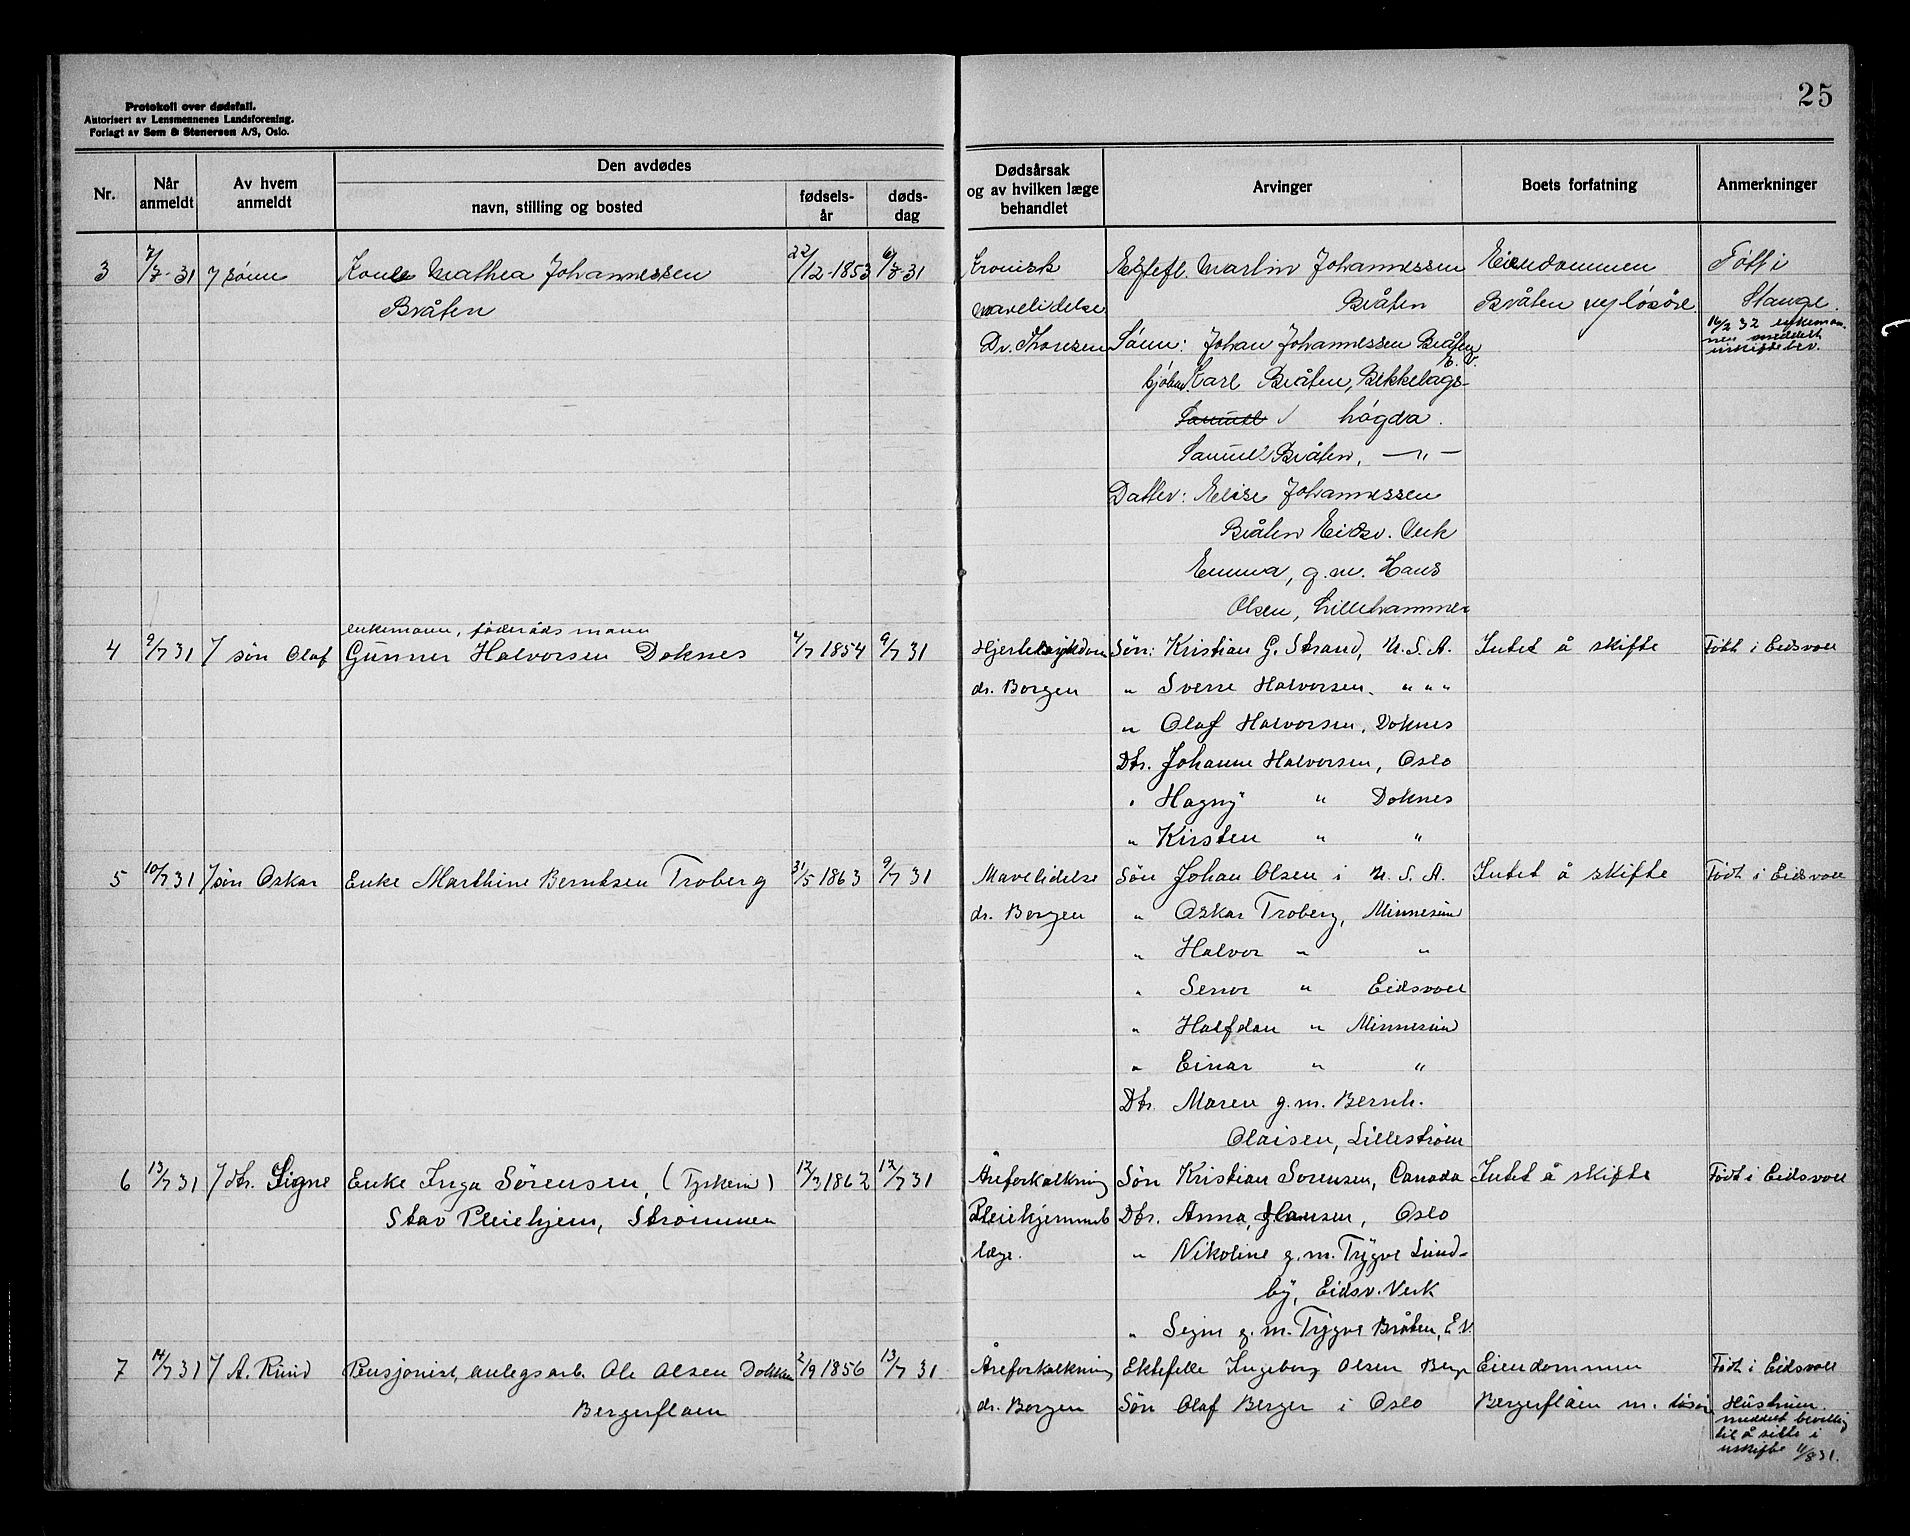 Protokoll over dødsfall.
Autorisert av Lensmennenes Landsforening.
Forlagt av Sem & Stenersen A/S, Oslo.
25
Nr.
Når anmeldt
Av hvem anmeldt
Den avdødes
navn, stilling og bosted
fødsels-år
døds-dag
Dødsårsak og av hvilken læge behandlet
Arvinger
Boets forfatning
Anmerkninger
3 7/7-31 sønn Kone Mathea Johannessen 22/12-1853 31 Kronisk Ektefl. Martin Johannessen Eiendommen Født i
Bråten mavelidelse Bråten Bråten m/ løsøre Stange.
Dr. Thoresen Sønn: Johan Johannessen Bråten E.V. 16/2 32 enkeman-
nen meddelt
uskiftebev.
Karl Bråten, Bekkelags-
Samuel høgda.
Samuel Bråten, —"—
Datter: Elise Johannessen
Bråten Eidsv. Verk
Emma, g.m. Hans
Olsen, Lillehammer
enkemann, føderådsmann
4 9/7 31 / søn Olaf Gunner Halvorsen Doknes 4/7 1854 9/7 31 Hjertesykdom Søn: Kristian G. Strand, U.S.A. Intet å skifte Født i Eidsvoll
dr. Borgen " Sverre Halvorsen, " " "
" Olaf Halvorsen, Doknes
Dtr. Johanne Halvorsen, Oslo
" Hagny " Doknes
" Kirsten " "
5 10/7 31 / søn Oskar Enke Marthine Berntsen Troberg 31/5 1863 9/7 31 Mavelidelse Søn Johan Olsen i U.S.A. Intet å skifte Født i Eidsvoll
dr. Borgen " Oskar Troberg, Minnesund
" Halvor " "
" Senor " Eidsvoll
" Halfdan " Minnesund
" Einar " "
Dtr. Maren g.m. Bernh.
Olaisen, Lillestrøm
6 13/7 31 / dtr. Signe Enke Inga Sørensen, (Tyskeru) 12/3 1862 12/7 31 Åreforkalkning Søn Kristian Sorensen, Canada Intet å skifte Født i Eidsvoll
Stav Pleiehjem, Strømmen Pleiehjemmets Dtr. Anna, Hansen, Oslo
læge. " Nikoline g.m. Trygve Lund-
by, Eidsv. Verk
" Signe g.m. Trygve Bråten, E.V.
7 14/7 31 / A. Ruud Pensjonist, anlegsarb. Ole Olsen Dokken 2/9 1856 13/7 31 Åreforkalkning Ektefelle Ingeborg Olsen Berger Eiendommen Født i Eidsvoll
Bergerfloen dr. Borgen Søn Olaf Berger i Oslo Bergerfloen m. løsøre Hustruen
meddelt bevilling
til å sitte i
uskifte 11/8 31.